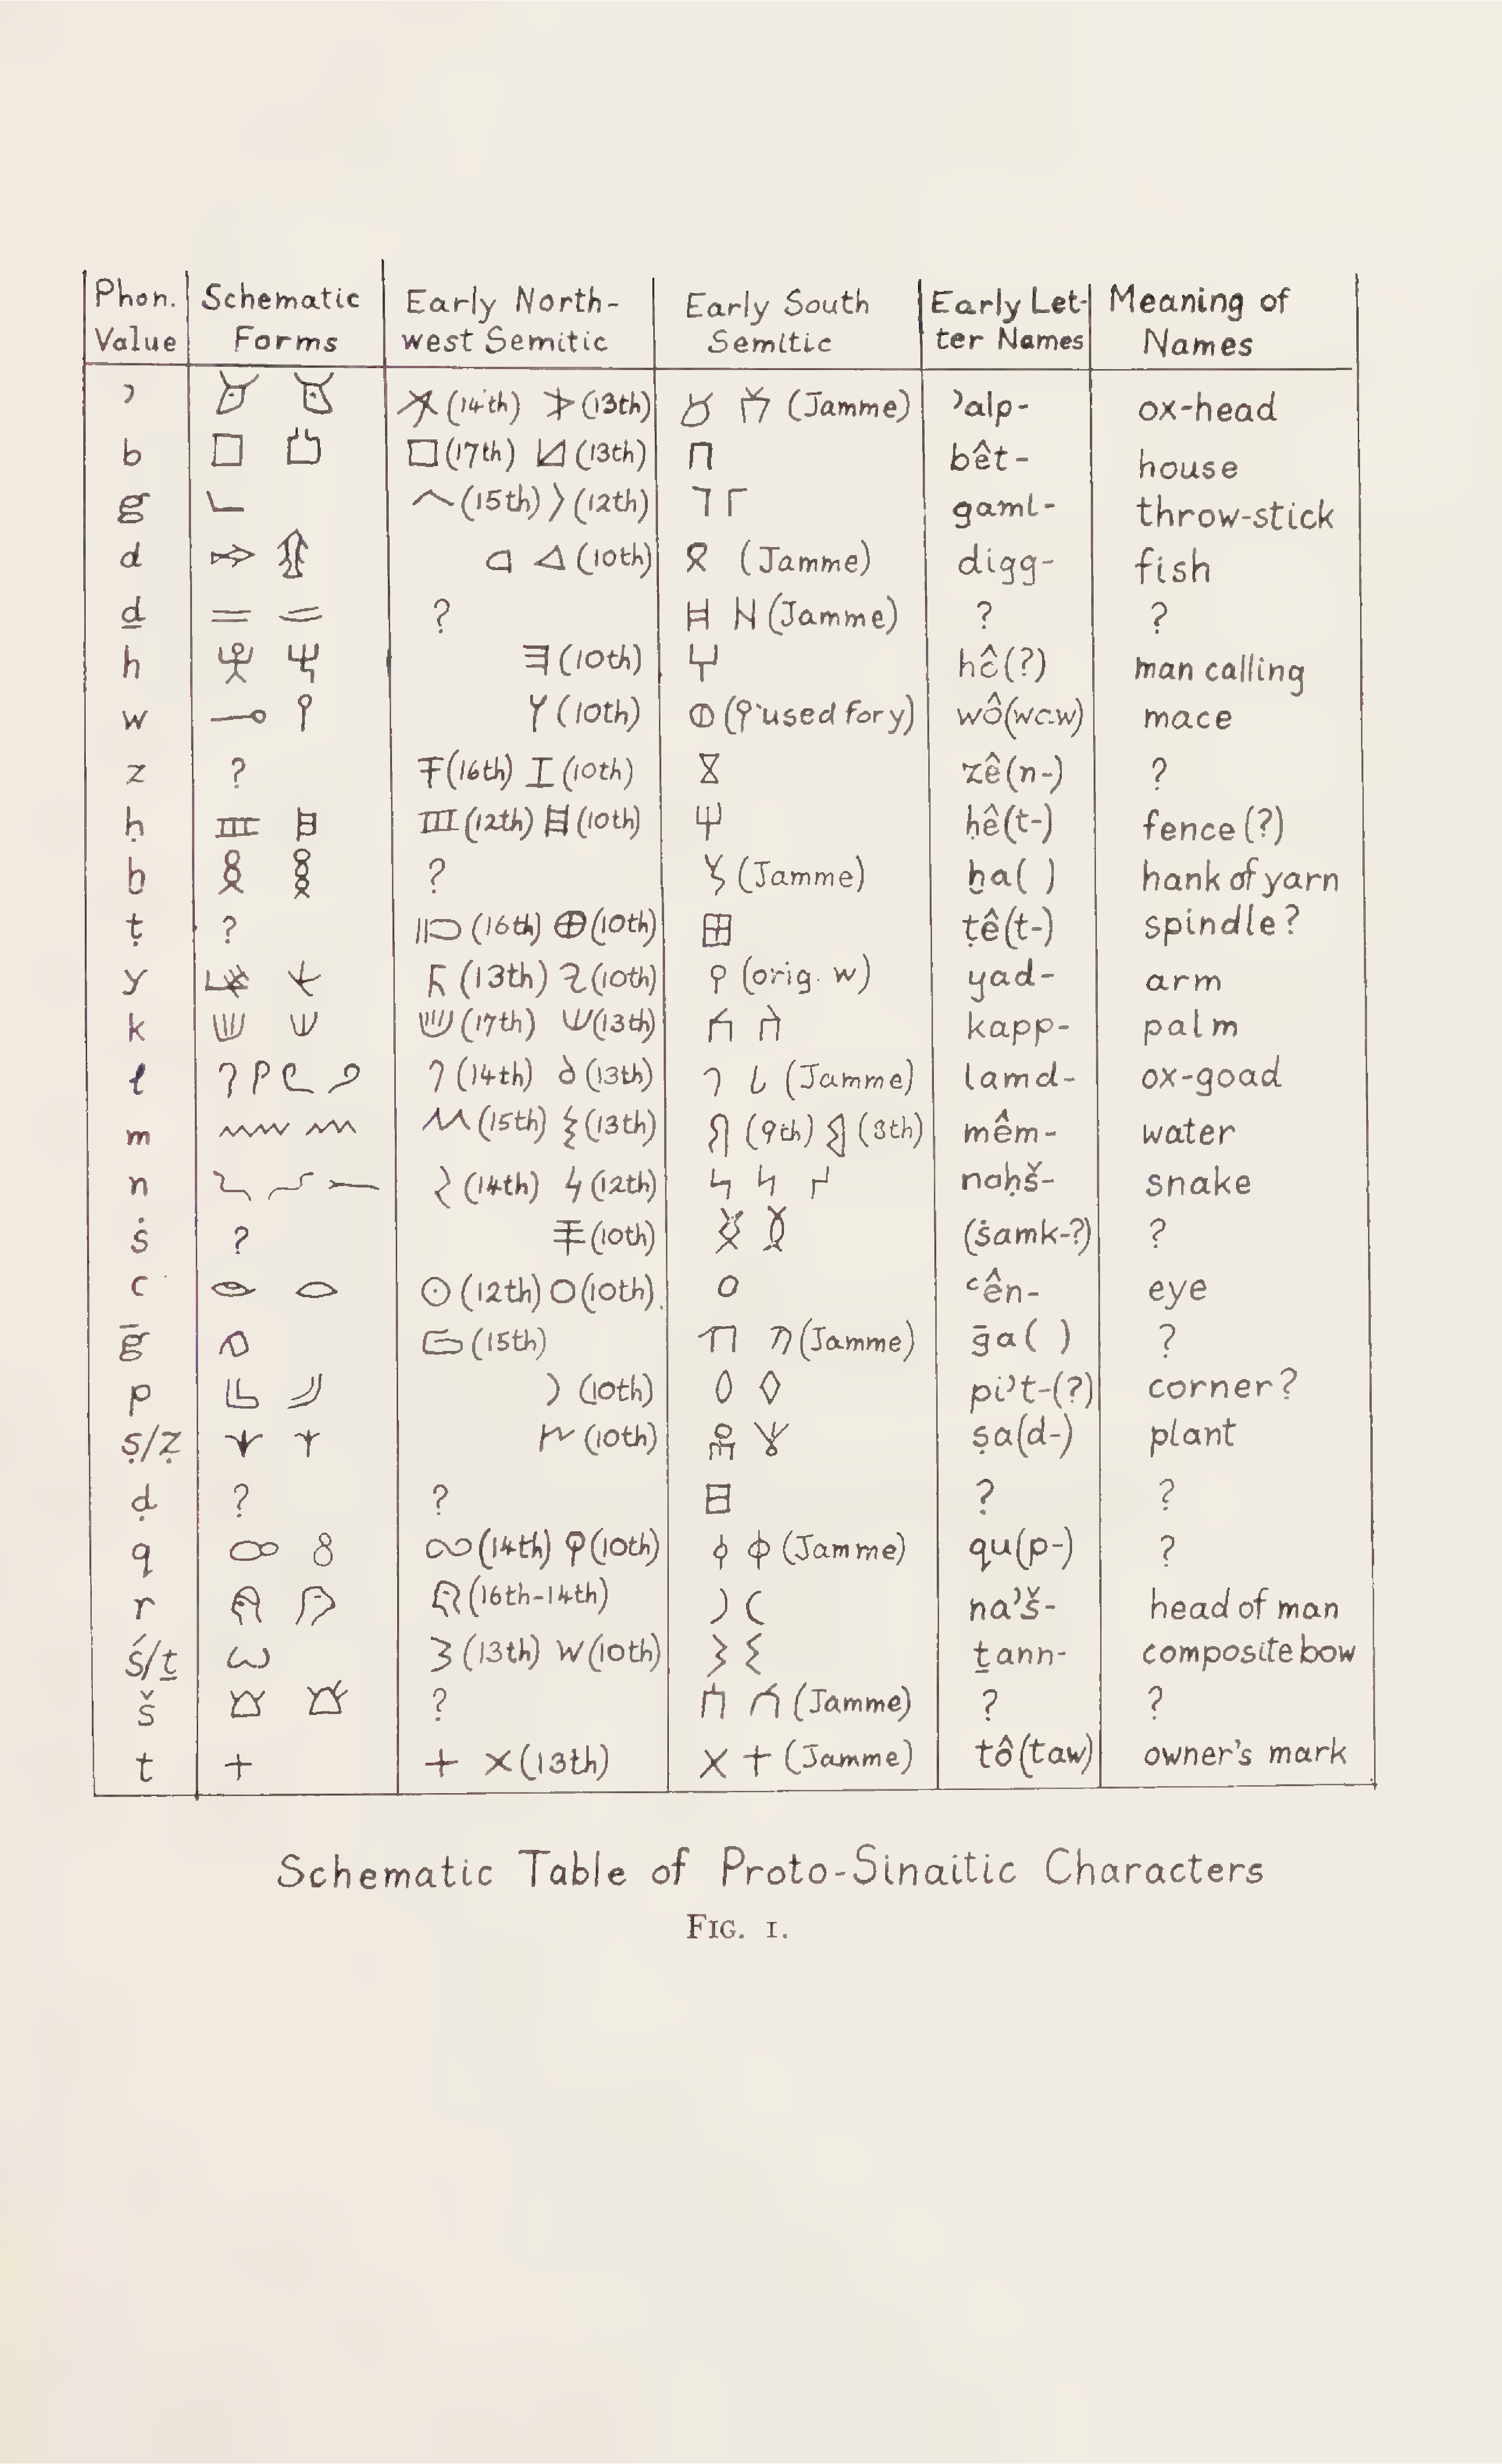 Phon. Value Schematic Forms Early North-west Semitic Early South Semitic Early Letter Names Meaning of Names
ʾ (14th) (13th) (Jamme) ʾalp- ox-head
b (17th) (13th) bêt- house
g (15th) (12th) gaml- throw-stick
d (10th) (Jamme) digg- fish
ḏ ? (Jamme) ? ?
h (10th) hê(?) man calling
w (10th) (used for y) wô(waw) mace
z ? (16th) (10th) zê(n-) ?
ḥ (12th) (10th) ḥê(t-) fence(?)
ḫ ? (Jamme) ḫa( ) hank of yarn
ṭ ? (16th) (10th) ṭê(t-) spindle?
y (13th) (10th) (orig. w) yad- arm
k (17th) (13th) kapp- palm
l (14th) (13th) (Jamme) lamd- ox-goad
m (15th) (13th) (9th) (8th) mêm- water
n (14th) (12th) naḥš- snake
ṡ ? (10th) (ṡamk-?) ?
ʿ (12th) (10th) ʿên- eye
ḡ (15th) (Jamme) ḡa( ) ?
p (10th) piʾt-(?) corner?
ṣ/ẓ (10th) ṣa(d-) plant
ḍ ? ? ? ?
q (14th) (10th) (Jamme) qu(p-) ?
r (16th-14th) naʾš- head of man
ś/ṯ (13th) (10th) ṯann- composite bow
š ? (Jamme) ? ?
t (13th) (Jamme) tô(taw) owner's mark
Schematic Table of Proto-Sinaitic Characters
FIG. 1.